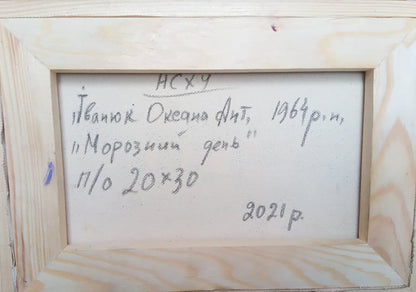 НСХУ
„Іванюк Оксана Ант, 1964р.н,
„Морозний день"
П/О 20×30
2021р.